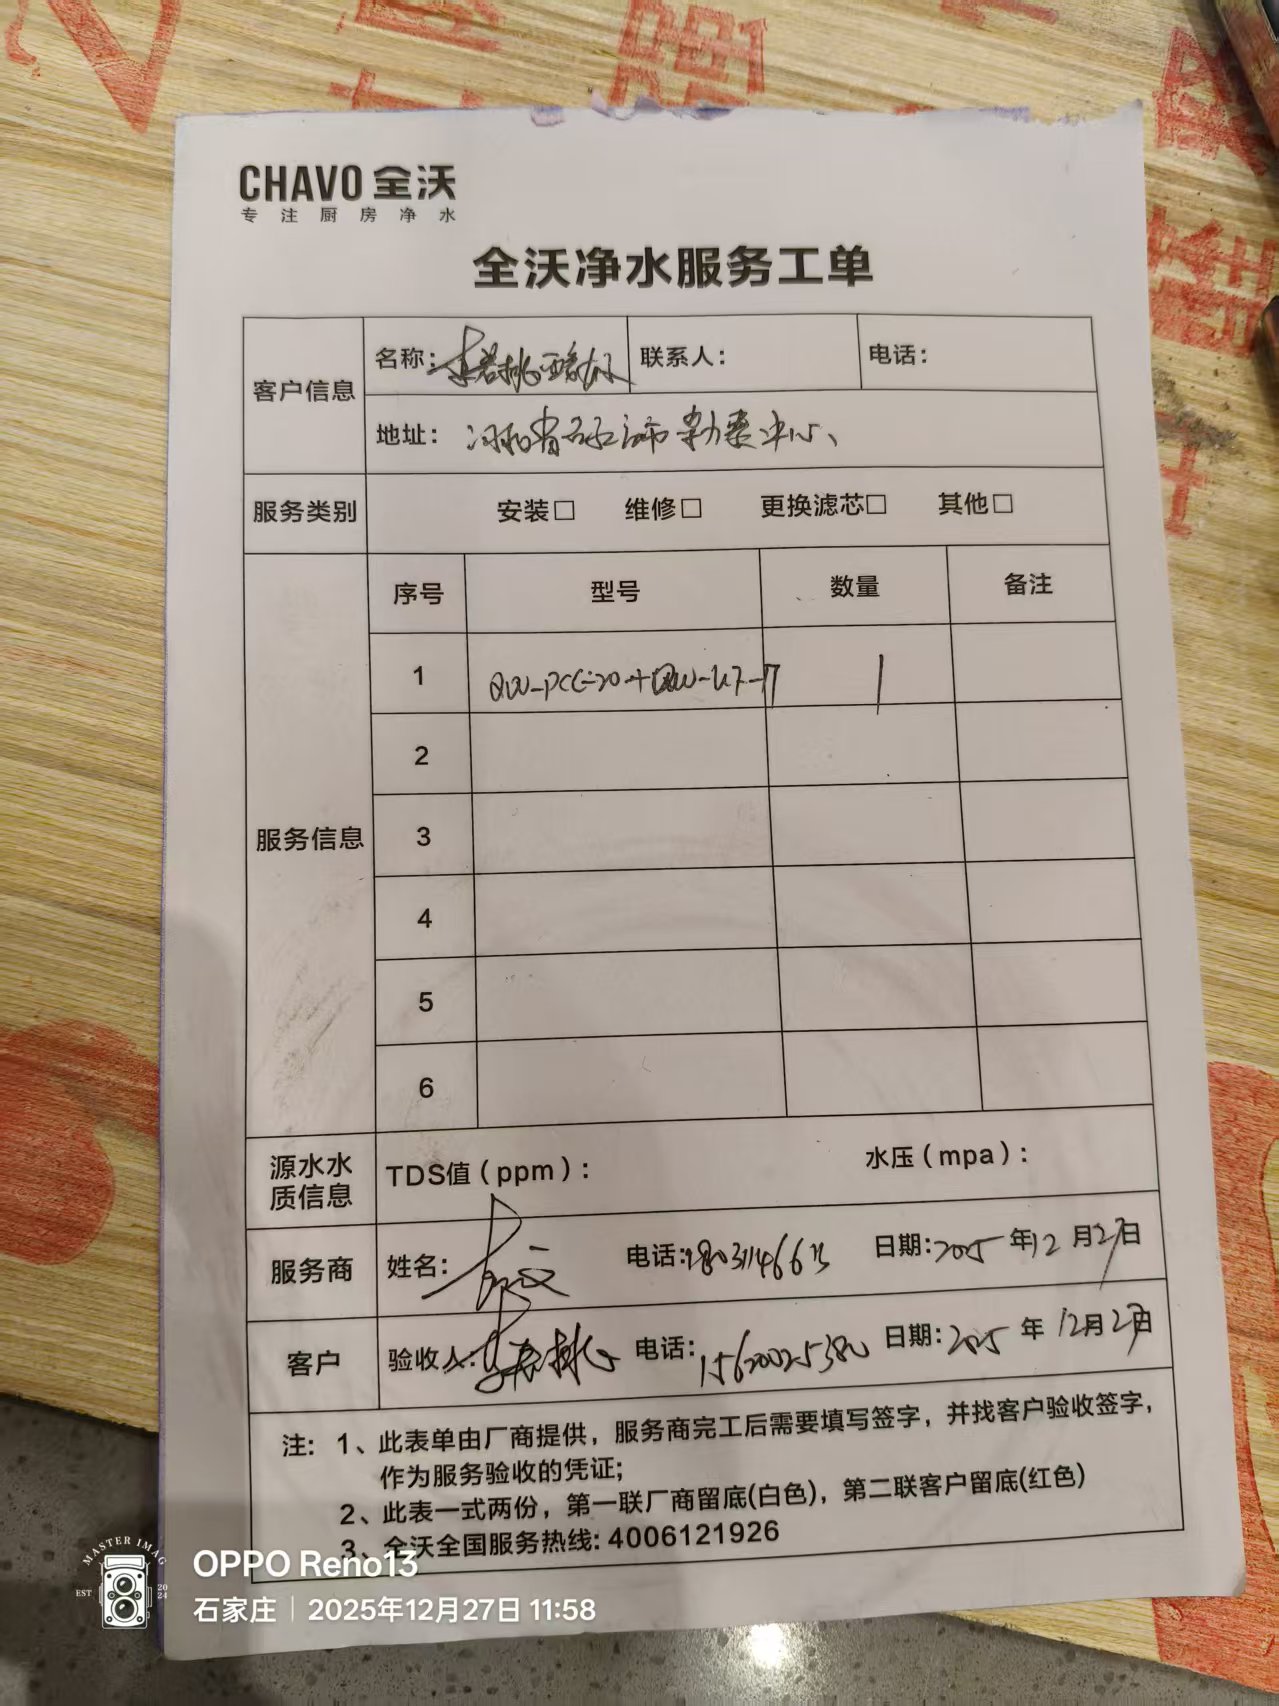 CHAVO 全沃
专注厨房净水
全沃净水服务工单
客户信息
名称:
联系人:
电话:
地址: 河北省石家庄市勒泰中心
服务类别
安装□ 维修□ 更换滤芯□ 其他□
服务信息
序号 型号 数量 备注
1 QW-PCC-20+QW-UF-17 1
2
3
4
5
6
源水水质信息
TDS值(ppm):
水压(mpa):
服务商
姓名:
电话:
日期:2025年12月27日
客户
验收人:
电话:15620025380
日期:2025年12月27日
注: 1、此表单由厂商提供，服务商完工后需要填写签字，并找客户验收签字，
作为服务验收的凭证;
2、此表一式两份，第一联厂商留底(白色)，第二联客户留底(红色)
3、全沃全国服务热线: 4006121926
MASTER IMAG
EST 2024
OPPO Reno13
石家庄 | 2025年12月27日 11:58